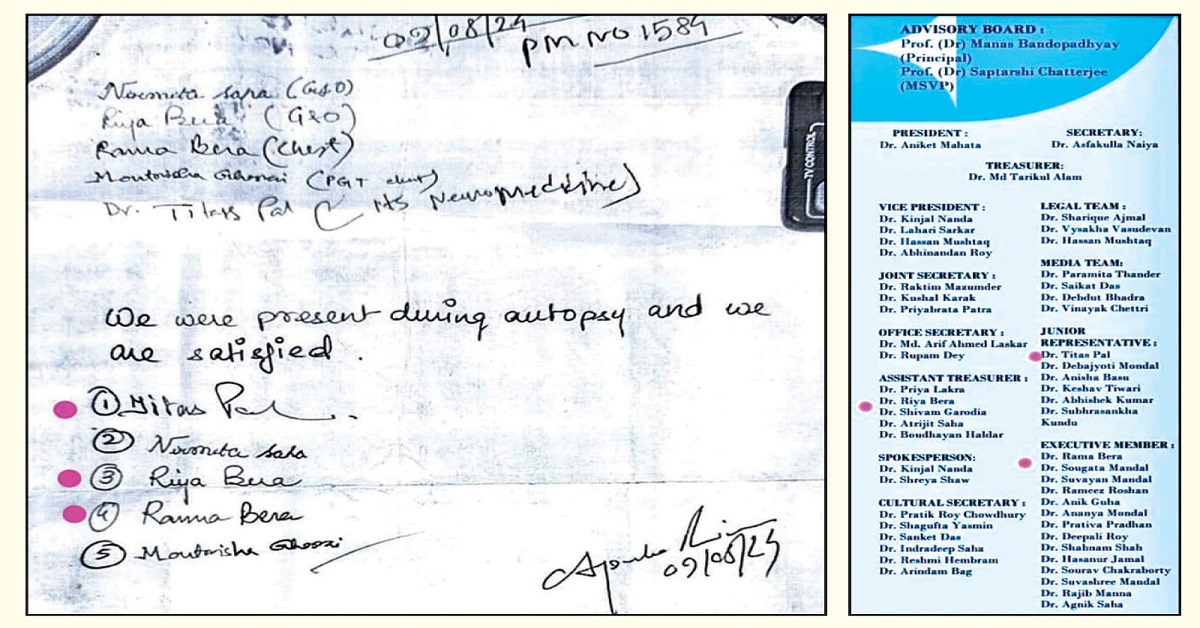 09/08/24
PM NO 1584
Noormita Saha (G&O)
Riya Bera (G&O)
Rama Bera (Chest)
(PGT chest)
Dr. Titas Pal ( HS Neuromedicine)
TV CONTROL
We were present during autopsy and we
are satisfied.
① Titas Pal
② Noormita Saha
③ Riya Bera
④ Rama Bera
⑤ Moutrisha Ghosh
09/08/24
ADVISORY BOARD :
Prof. (Dr) Manas Bandopadhyay
(Principal)
Prof. (Dr) Saptarshi Chatterjee
(MSVP)
PRESIDENT :
Dr. Aniket Mahata
SECRETARY:
Dr. Asfakulla Naiya
TREASURER:
Dr. Md Tarikul Alam
VICE PRESIDENT :
Dr. Kinjal Nanda
Dr. Lahari Sarkar
Dr. Hassan Mushtaq
Dr. Abhinandan Roy
JOINT SECRETARY :
Dr. Raktim Mazumder
Dr. Kushal Karak
Dr. Priyabrata Patra
OFFICE SECRETARY :
Dr. Md. Arif Ahmed Laskar
Dr. Rupam Dey
ASSISTANT TREASURER :
Dr. Priya Lakra
Dr. Riya Bera
Dr. Shivam Garodia
Dr. Atrijit Saha
Dr. Boudhayan Haldar
SPOKESPERSON:
Dr. Kinjal Nanda
Dr. Shreya Shaw
CULTURAL SECRETARY :
Dr. Pratik Roy Chowdhury
Dr. Shagufta Yasmin
Dr. Sanket Das
Dr. Indradeep Saha
Dr. Reshmi Hembram
Dr. Arindam Bag
LEGAL TEAM :
Dr. Sharique Ajmal
Dr. Vysakha Vasudevan
Dr. Hassan Mushtaq
MEDIA TEAM:
Dr. Paramita Thander
Dr. Saikat Das
Dr. Debdut Bhadra
Dr. Vinayak Chettri
JUNIOR
REPRESENTATIVE :
Dr. Titas Pal
Dr. Debajyoti Mondal
Dr. Anisha Basu
Dr. Keshav Tiwari
Dr. Abhishek Kumar
Dr. Subhrasankha
Kundu
EXECUTIVE MEMBER :
Dr. Rama Bera
Dr. Sougata Mandal
Dr. Suvayan Mandal
Dr. Rameez Roshan
Dr. Anik Guha
Dr. Ananya Mondal
Dr. Prativa Pradhan
Dr. Deepali Roy
Dr. Shabnam Shah
Dr. Hasanur Jamal
Dr. Sourav Chakraborty
Dr. Suvashree Mandal
Dr. Rajib Manna
Dr. Agnik Saha